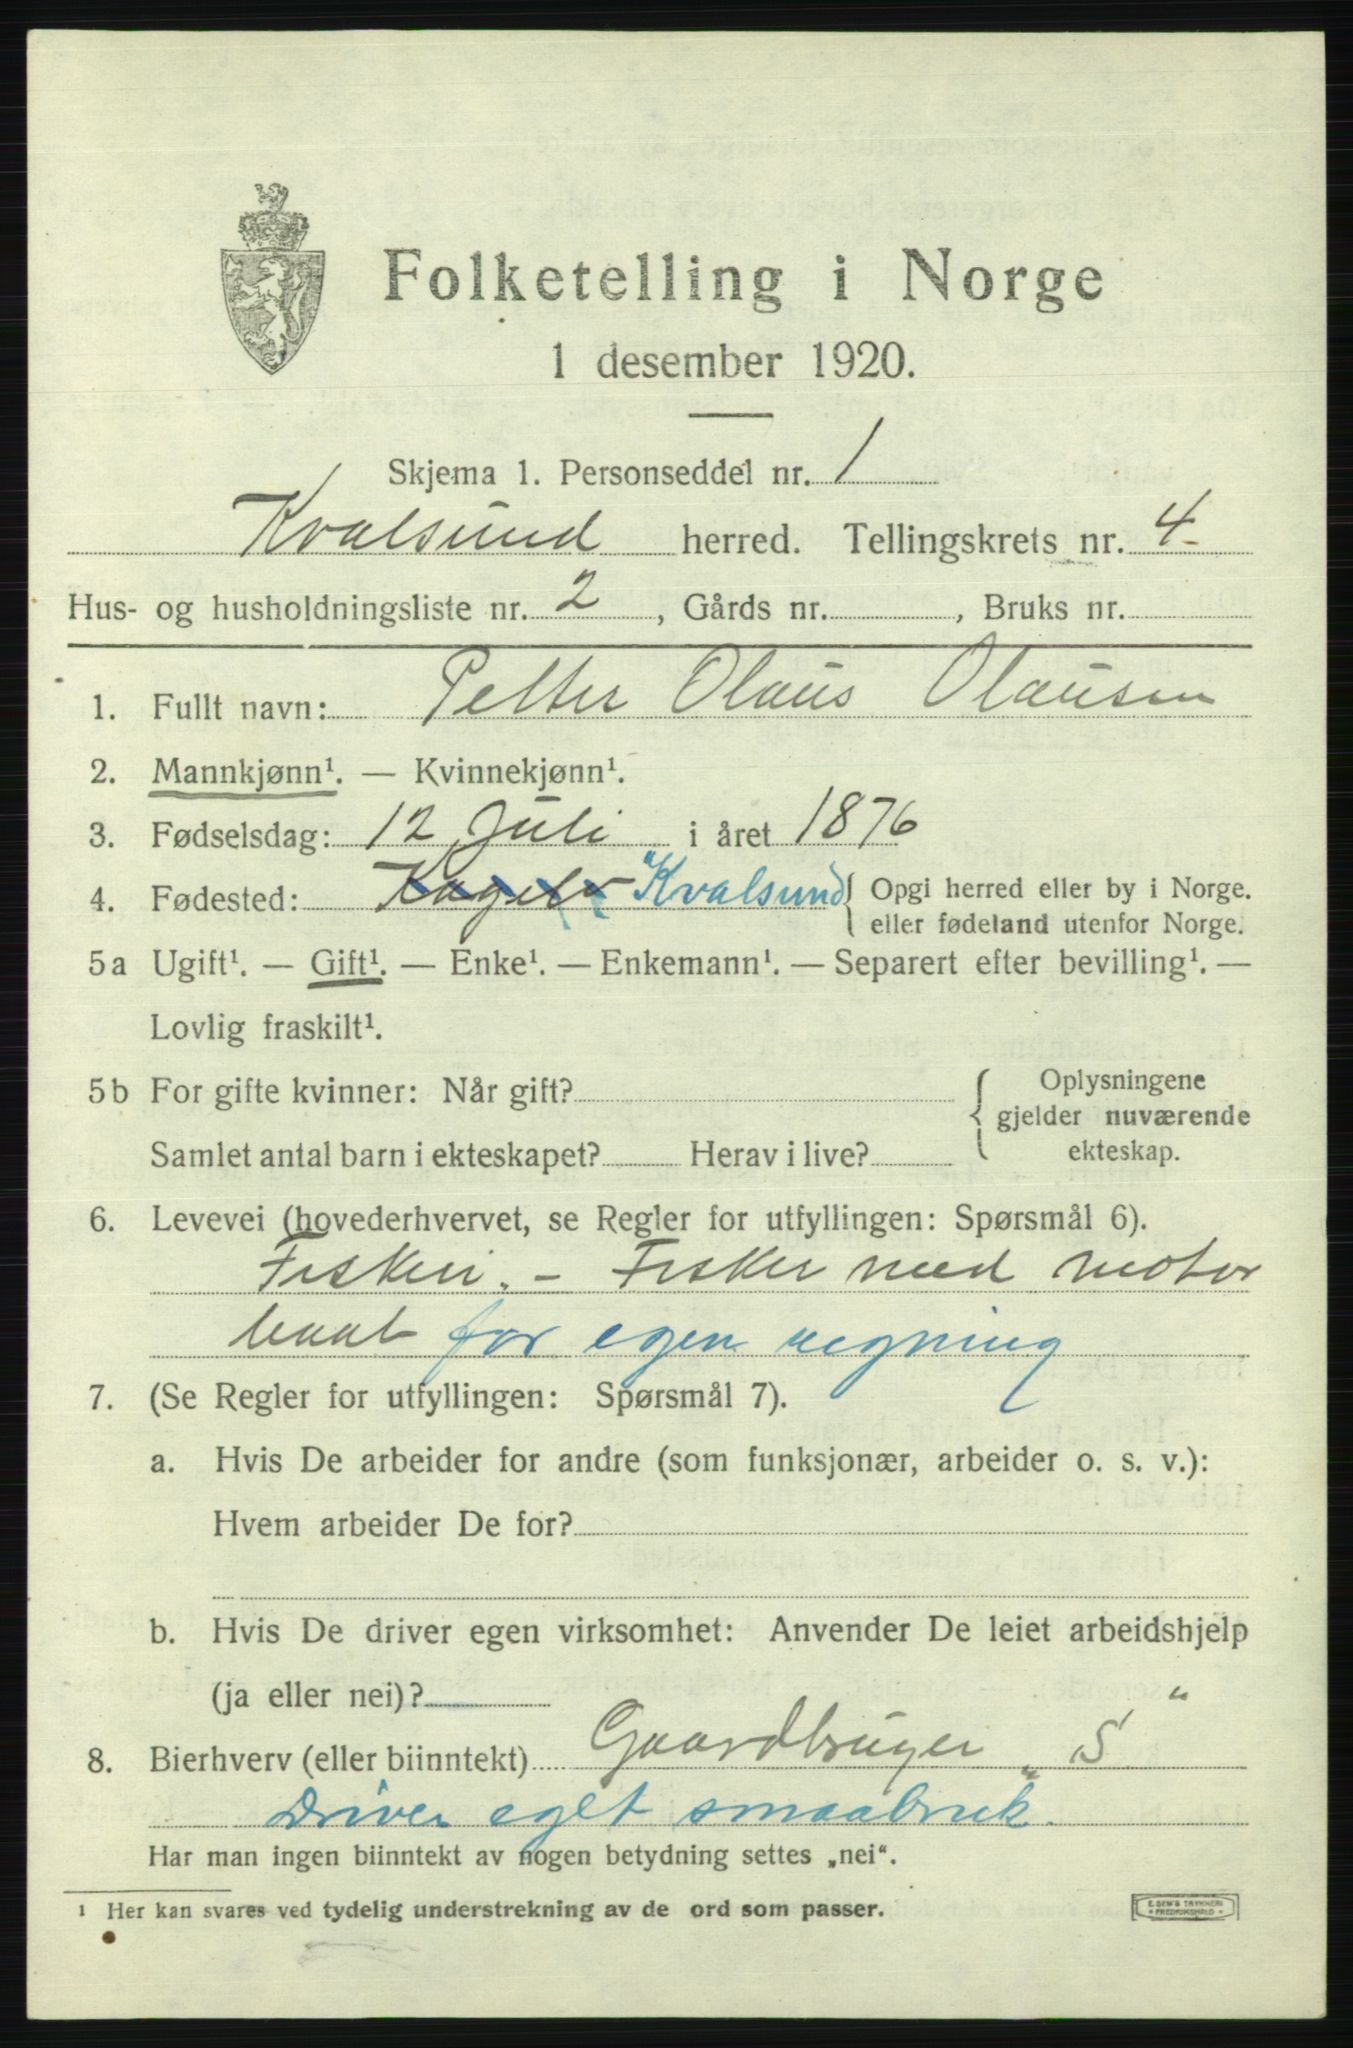 Folketelling i Norge
1 desember 1920.
Skjema 1. Personseddel nr. 1
Kvalsund herred. Tellingskrets nr. 4
Hus- og husholdningsliste nr. 2, Gårds nr. , Bruks nr.
1. Fullt navn: Petter Olaus Olausen
2. Mannkjønn¹. — Kvinnekjønn¹.
3. Fødselsdag: 12 Juli i året 1876
4. Fødested: Kvalsund { Opgi herred eller by i Norge.
eller fødeland utenfor Norge.
5a Ugift¹. — Gift¹. — Enke¹. — Enkemann¹. — Separert efter bevilling¹. —
Lovlig fraskilt¹.
5b For gifte kvinner: Når gift? { Oplysningene
gjelder nuværende
Samlet antal barn i ekteskapet? Herav i live? ekteskap.
6. Levevei (hovederhvervet, se Regler for utfyllingen: Spørsmål 6).
Fiskeri. – Fisker med motor
baat for egen regning
7. (Se Regler for utfyllingen: Spørsmål 7).
a. Hvis De arbeider for andre (som funksjonær, arbeider o. s. v.):
Hvem arbeider De for?
b. Hvis De driver egen virksomhet: Anvender De leiet arbeidshjelp
(ja eller nei)?
8. Bierhverv (eller biinntekt) Gaardbruger „S“
Driver eget smaabruk.
Har man ingen biinntekt av nogen betydning settes „nei“.
¹ Her kan svares ved tydelig understrekning av de ord som passer.
E. SEM'S TRYKKERI
* FREDRIKSHALD *